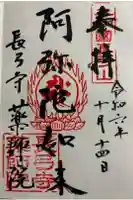 奉拝
令和六年
十月十四日
阿弥陀如来
長弓寺
薬師院